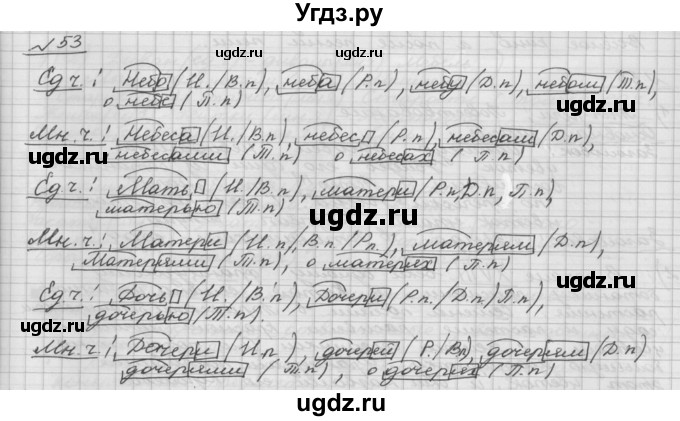 Угдз.ру
№53
Ед.ч.: Небо (И./В.п), неба (Р.п), небу (Д.п), небом (Т.п),
о небе (П.п)
Мн.ч.: Небеса (И./В.п), небес (Р.п), небесам (Д.п),
небесами (Т.п) о небесах (П.п)
Ед.ч.: Мать (И./В.п), матери (Р.п, Д.п, П.п),
матерью (Т.п)
Мн.ч.: Матери (И.п/В.п/Р.п), матерям (Д.п),
Матерями (Т.п), о матерях (П.п)
Ед.ч.: Дочь (И./В.п), Дочери (Р.п./Д.п) П.п),
дочерью (Т.п).
Мн.ч.: Дочери (И.п), дочерей (Р./Вп), дочерям (Д.п)
дочерями (Т.п), о дочерях (П.п)
ugdz.ru
ugdz.ru
ugdz.ru
ugdz.ru
ugdz.ru
ugdz.ru
ugdz.ru
ugdz.ru
ugdz.ru
ugdz.ru
ugdz.ru
ugdz.ru